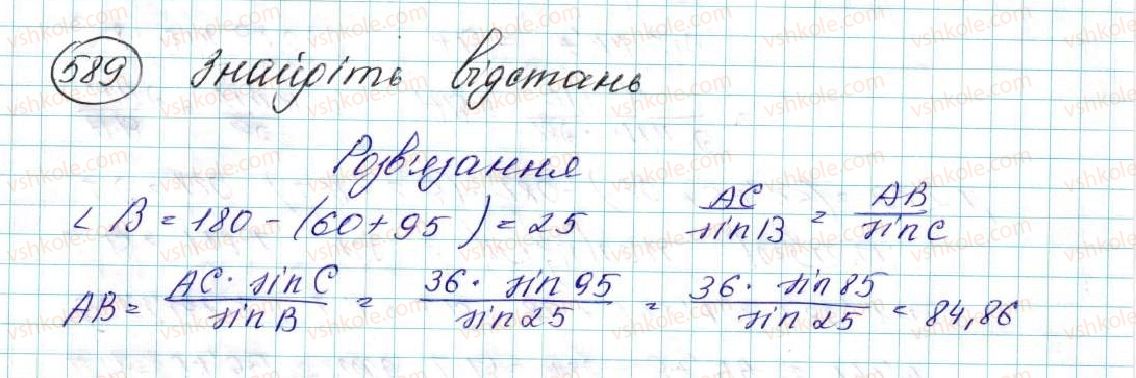 589 Знайдіть відстань
Розв'язання
∠B = 180 - (60 + 95) = 25 AC/sin B = AB/sin C
AB = AC · sin C/sin B = 36 · sin 95/sin 25 = 36 · sin 85/sin 25 = 84,86